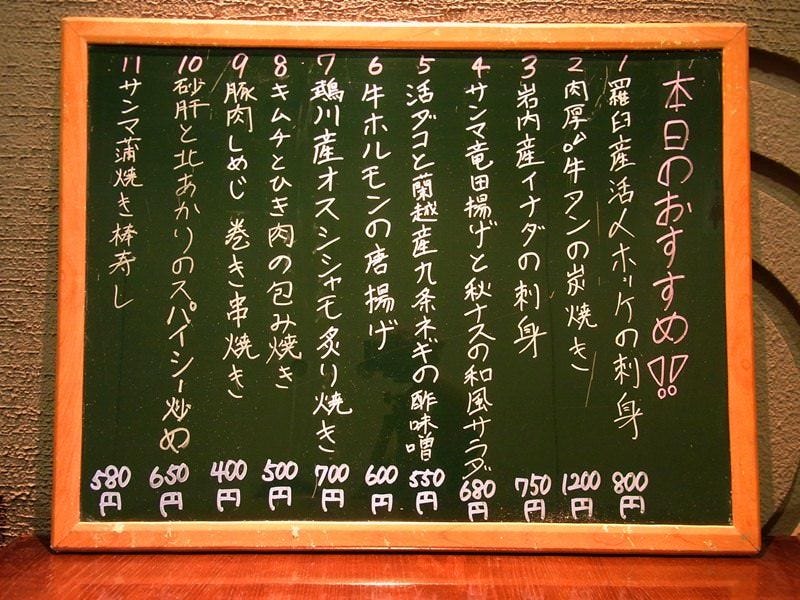 本日のおすすめ!!
1 羅臼産活〆ホッケの刺身 800円
2 肉厚牛タンの炭焼き 1200円
3 岩内産イナダの刺身 750円
4 サンマ竜田揚げと秋ナスの和風サラダ 680円
5 活ダコと蘭越産九条ネギの酢味噌 550円
6 牛ホルモンの唐揚げ 600円
7 鵡川産オスシシャモ炙り焼き 700円
8 キムチとひき肉の包み焼き 500円
9 豚肉しめじ 巻き串焼き 400円
10 砂肝と北あかりのスパイシー炒め 650円
11 サンマ蒲焼き棒寿し 580円